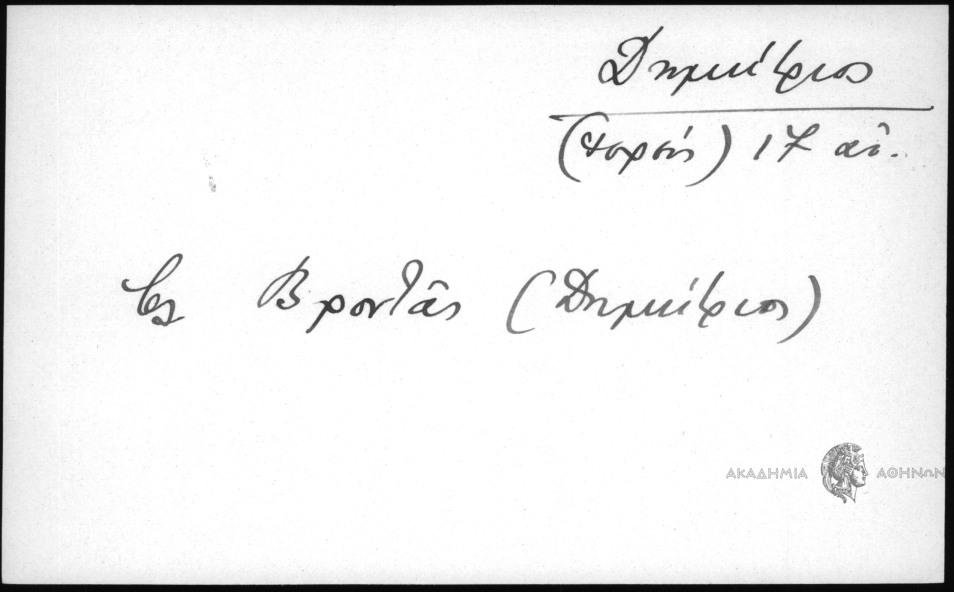 Δημήτριος
( ) 17 αἰ.
Βροντᾶς (Δημήτριος)
ΑΚΑΔΗΜΙΑ ΑΘΗΝΩΝ